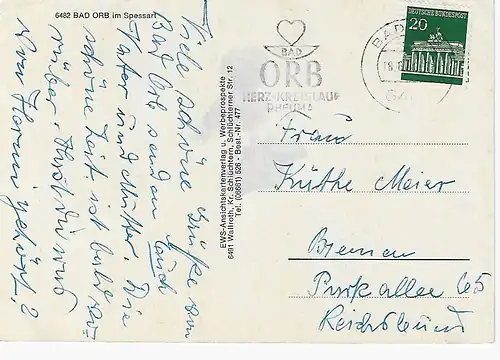 6482 BAD ORB im Spessart
Viele schöne Grüße von
Bad Orb senden Euch
Vater und Mutter. Die
schöne Zeit ist bald vor-
rüber. Hast du was
von Hanni gehört?
EWS-Ansichtskartenverlag u. Werbeprospekte
6491 Wallroth, Kr. Schlüchtern, Schlüchterner Str. 12
Tel. (06661) 526 - Best.-Nr. 477
BAD
ORB
HERZ-KREISLAUF
RHEUMA
BAD
18.
64
DEUTSCHE BUNDESPOST
20
Frau
Käthe Meier
Bremen
Parkallee 65
Reichsbund